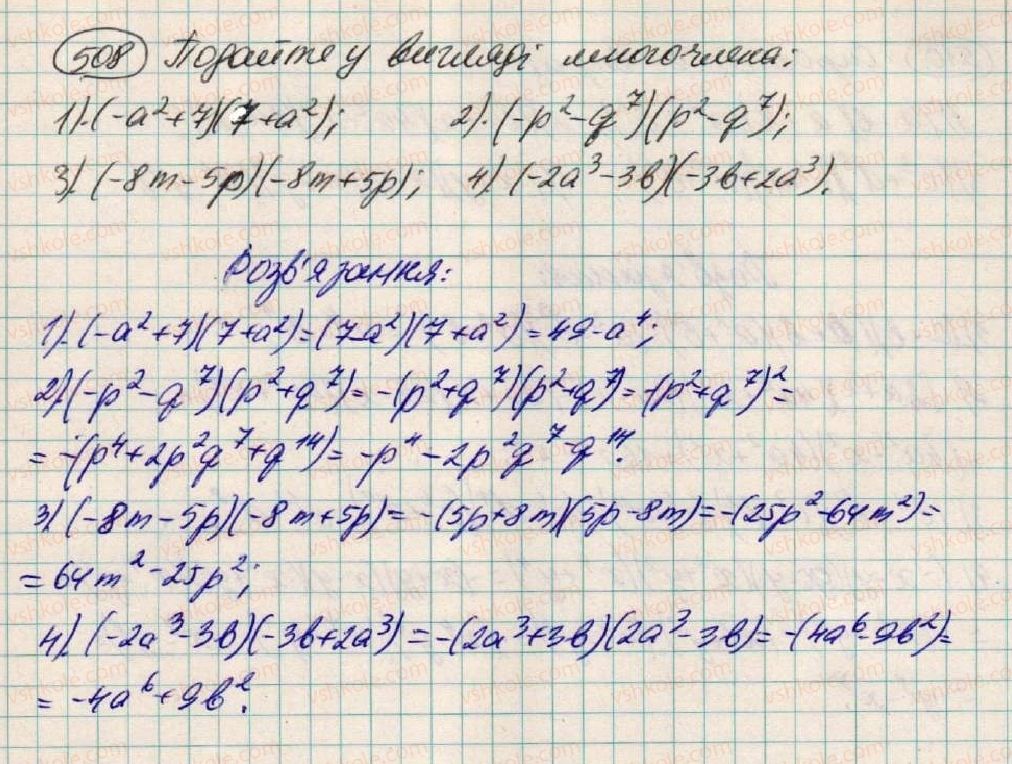 508 Подайте у вигляді многочлена:
1). (-a²+7)(7+a²); 2). (-p²-q⁷)(p²-q⁷);
3) (-8m-5p)(-8m+5p); 4) (-2a³-3b)(-3b+2a³).
Розв'язання:
1). (-a²+7)(7+a²)=(7-a²)(7+a²)=49-a⁴;
2) (-p²-q⁷)(p²+q⁷)=-(p²+q⁷)(p²+q⁷)=-(p²+q⁷)²=
=-(p⁴+2p²q⁷+q¹⁴)=-p⁴-2p²q⁷-q¹⁴.
3) (-8m-5p)(-8m+5p)=-(5p+8m)(5p-8m)=-(25p²-64m²)=
=64m²-25p²;
4). (-2a³-3b)(-3b+2a³)=-(2a³+3b)(2a³-3b)=-(4a⁶-9b²)=
=-4a⁶+9b².